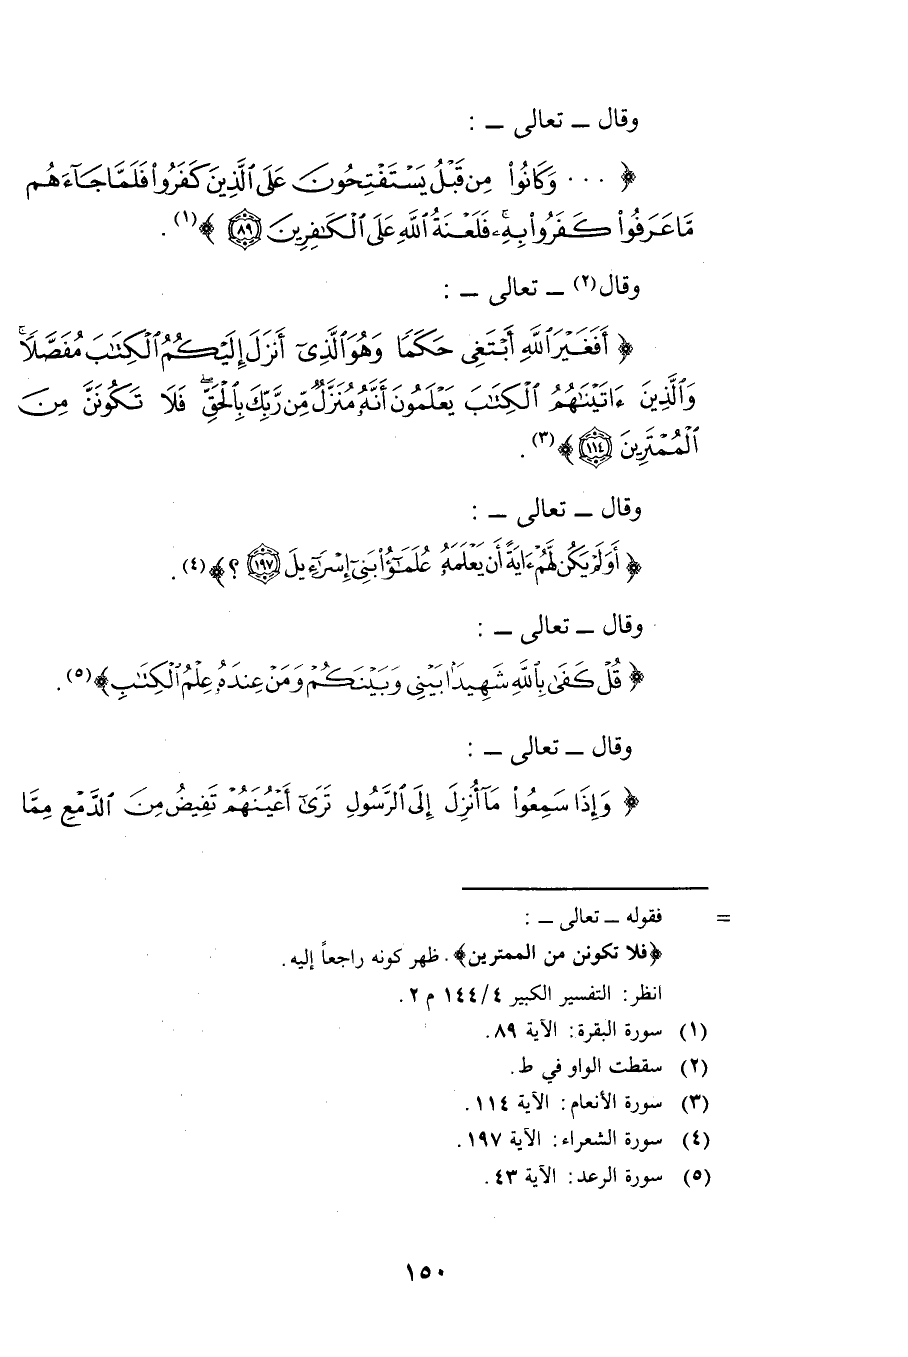 وقال – تعالى – :
﴿ ... وَكَانُوا۟ مِن قَبْلُ يَسْتَفْتِحُونَ عَلَى ٱلَّذِينَ كَفَرُوا۟ فَلَمَّا جَآءَهُم
مَّا عَرَفُوا۟ كَفَرُوا۟ بِهِۦۚ فَلَعْنَةُ ٱللَّهِ عَلَى ٱلْكَـٰفِرِينَ ۝٨٩ ﴾(١) .
وقال(٢) – تعالى – :
﴿ أَفَغَيْرَ ٱللَّهِ أَبْتَغِى حَكَمًا وَهُوَ ٱلَّذِىٓ أَنزَلَ إِلَيْكُمُ ٱلْكِتَـٰبَ مُفَصَّلًاۚ
وَٱلَّذِينَ ءَاتَيْنَـٰهُمُ ٱلْكِتَـٰبَ يَعْلَمُونَ أَنَّهُۥ مُنَزَّلٌ مِّن رَّبِّكَ بِٱلْحَقِّۖ فَلَا تَكُونَنَّ مِنَ
ٱلْمُمْتَرِينَ ۝١١٤ ﴾(٣) .
وقال – تعالى – :
﴿ أَوَلَمْ يَكُن لَّهُمْ ءَايَةً أَن يَعْلَمَهُۥ عُلَمَـٰٓؤُا۟ بَنِىٓ إِسْرَٰٓءِيلَ ۝١٩٧ ؟ ﴾(٤) .
وقال – تعالى – :
﴿ قُلْ كَفَىٰ بِٱللَّهِ شَهِيدًۢا بَيْنِى وَبَيْنَكُمْ وَمَنْ عِندَهُۥ عِلْمُ ٱلْكِتَـٰبِ ﴾(٥) .
وقال – تعالى – :
﴿ وَإِذَا سَمِعُوا۟ مَآ أُنزِلَ إِلَى ٱلرَّسُولِ تَرَىٰٓ أَعْيُنَهُمْ تَفِيضُ مِنَ ٱلدَّمْعِ مِمَّا
= فقوله – تعالى – :
﴿فلا تكونن من الممترين﴾. ظهر كونه راجعاً إليه.
انظر: التفسير الكبير ١٤٤/٤ م ٢.
(١) سورة البقرة: الآية ٨٩.
(٢) سقطت الواو في ط.
(٣) سورة الأنعام: الآية ١١٤.
(٤) سورة الشعراء: الآية ١٩٧.
(٥) سورة الرعد: الآية ٤٣.
١٥٠